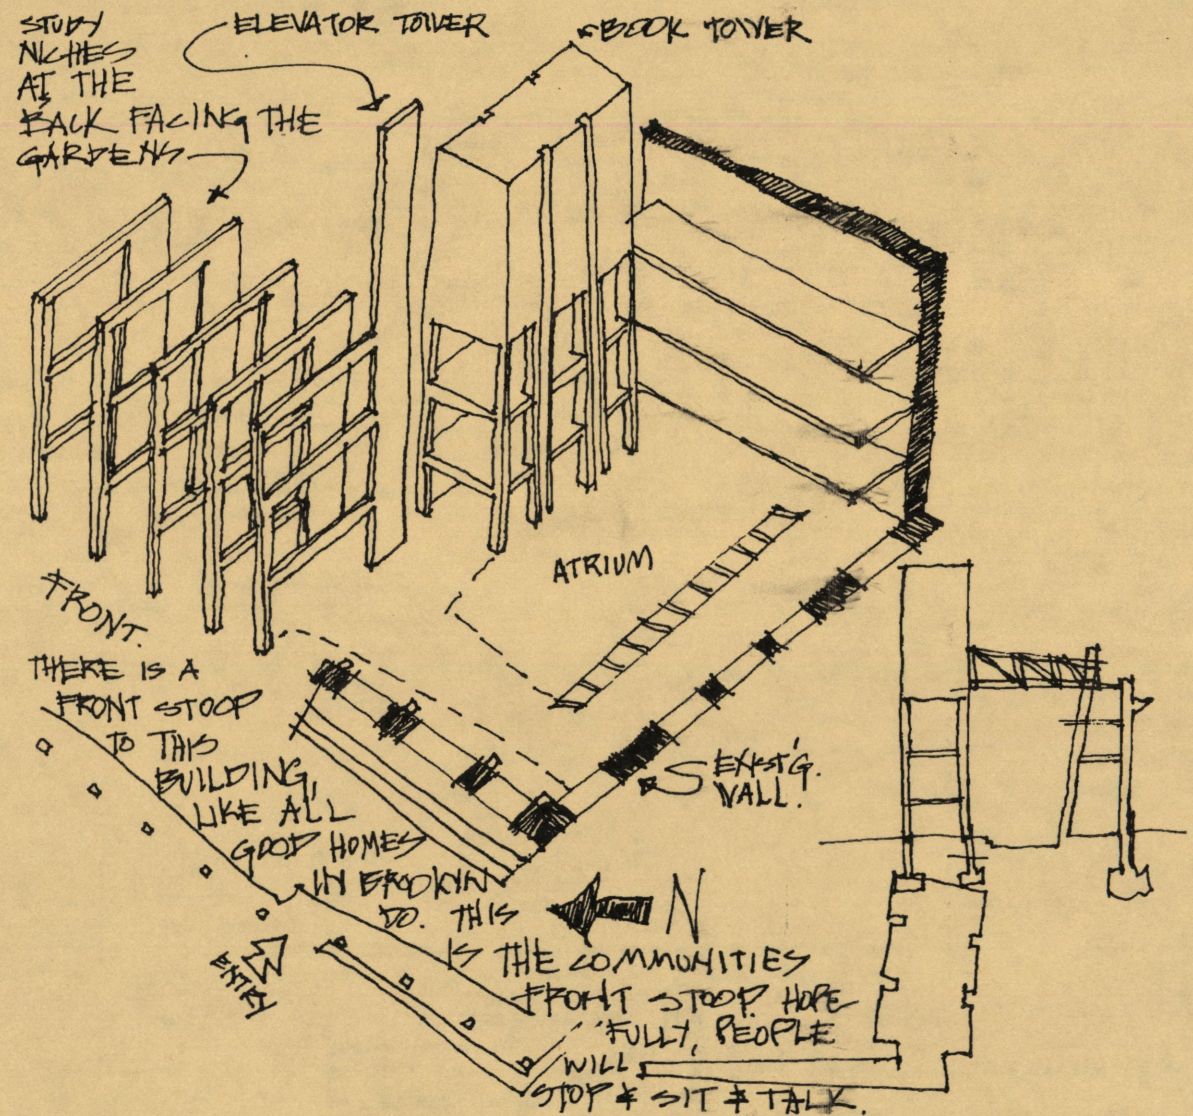 STUDY
NICHES
AT THE
BACK FACING THE
GARDENS
ELEVATOR TOWER
BOOK TOWER
ATRIUM
FRONT.
THERE IS A
FRONT STOOP
TO THIS
BUILDING,
LIKE ALL
GOOD HOMES
IN BROOKLYN
DO. THIS
IS THE COMMUNITIES
FRONT STOOP. HOPE
FULLY, PEOPLE
WILL
STOP & SIT & TALK.
EXIST'G.
WALL.
N
ENTRY